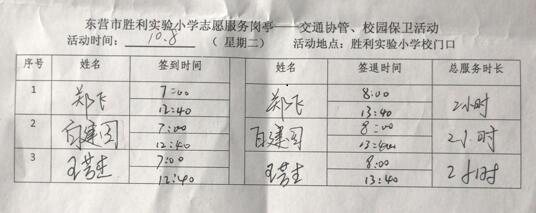 东营市胜利实验小学志愿服务岗亭——交通协管、校园保卫活动
活动时间：10.8（ 星期二） 活动地点：胜利实验小学校门口
序号 姓名 签到时间 姓名 签退时间 总服务时长
1 郑飞 7:00 郑飞 8:00 2小时
12:40 13:40
2 白建国 7:00 白建国 8:00 2小时
12:40 13:40
3 7:00 8:00 2小时
12:40 13:40